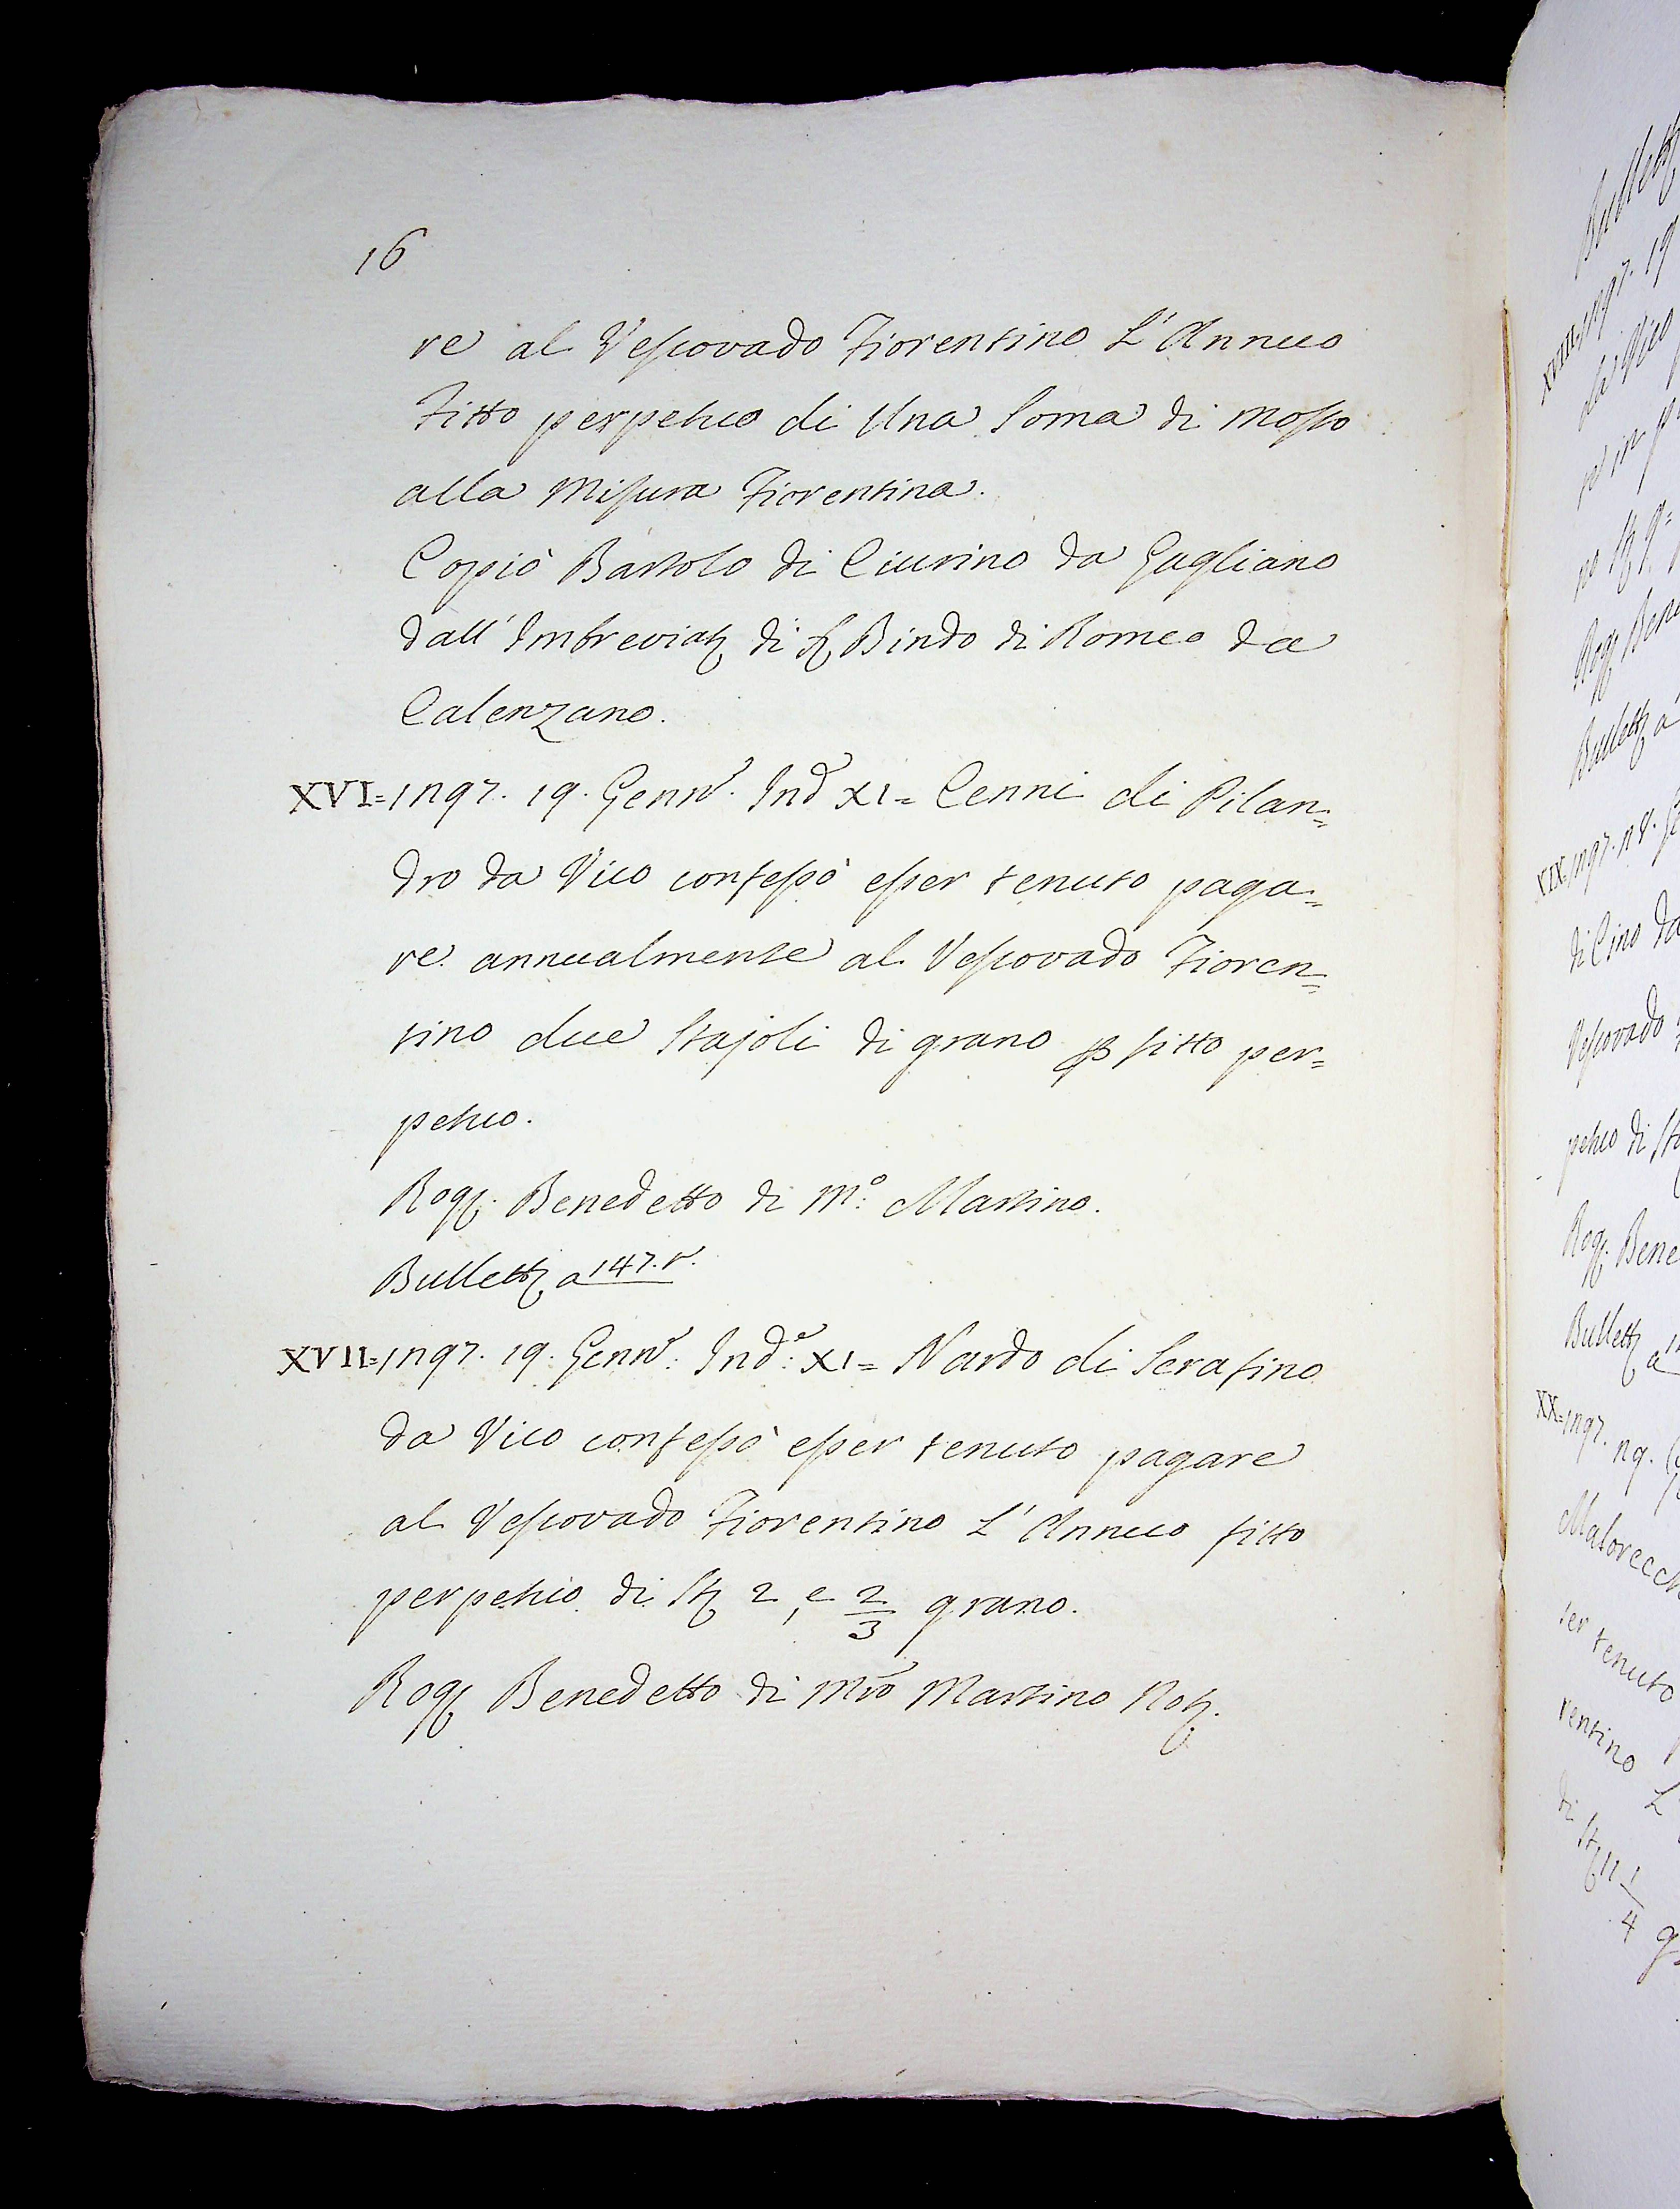 16
re al Vescovado Fiorentino L'Annuo
Fitto perpetuo di Una Soma di Mosto
alla Misura Fiorentina.
Copiò Bartolo di Ciurino da Gagliano
dall'Imbreviat. di S. Bindo di Romeo da
Calenzano.
XVI=1297. 19. Genn.º Ind. XI= Cenni di Pilan=
dro da Vico confessò esser tenuto paga=
re annualmente al Vescovado Fioren=
tino due Stajoli di grano p fitto per=
petuo.
Rog. Benedetto di M.º Martino.
Bullett. a 147.r.
XVII=1297. 19. Genn.º: Ind.e XI= Nardo di Serafino
da Vico confessò esser tenuto pagare
al Vescovado Fiorentino L'Annuo fitto
perpetuo di St. 2, e 2/3 grano.
Rog. Benedetto di Mro Martino Not.
Bullett
XVIII=1297. 19
da Vico
Rog. Bene
Bullett. a
XIX=1297. 28.
di Cino da
Vescovado
petuo di St
Rog. Bene
Bullett. a
XX=1297. 29.
Malorecch
ser tenuto
rentino L'
di St. 11 1/4